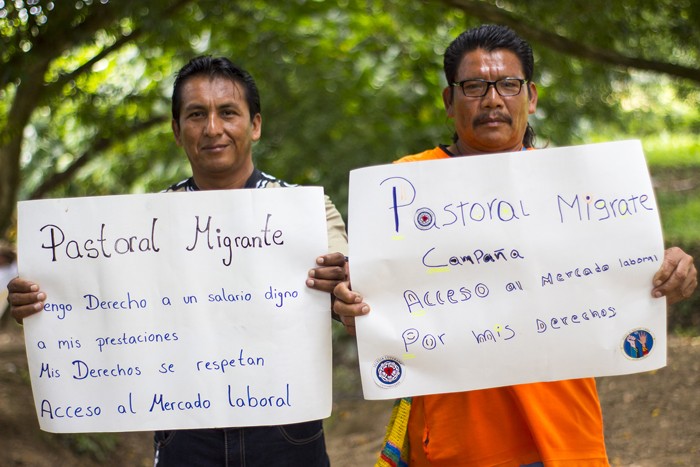 Pastoral Migrante
engo Derecho a un salario digno
a mis prestaciones
Mis Derechos se respetan
Acceso al Mercado laboral
Pastoral Migrate
Campaña
Acceso al Mercado laboral
Por mis Derechos